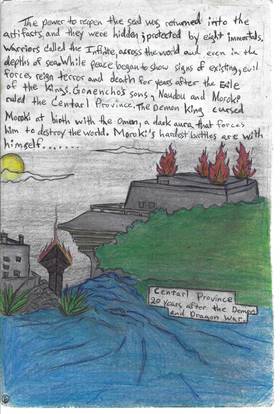 The power to reopen the seal was returned into the
artifacts, and they were hidden, protected by eight immortals.
Warriors called the Infinite, across the world and even in the
depths of sea. While peace began to show signs of existing, evil
forces reign terror and death for years after the Exile
of the Kings. Gonencho's sons, Naudou and Moroki
ruled the Centarl Province. The Demon King cursed
Moroki at birth with the Omen, a dark aura that forces
him to destroy the world. Moroki's hardest battles are with
himself.......
Centarl Province
20 years after the Demon
and Dragon War.